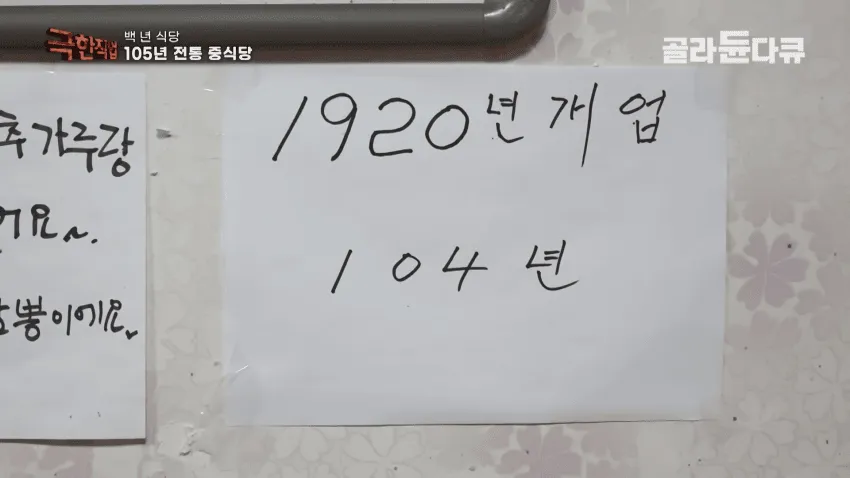 극한직업
백 년 식당
105년 전통 중식당
골라듄다큐
추가주랑
요~.
뽕이에요
1920년개업
104년